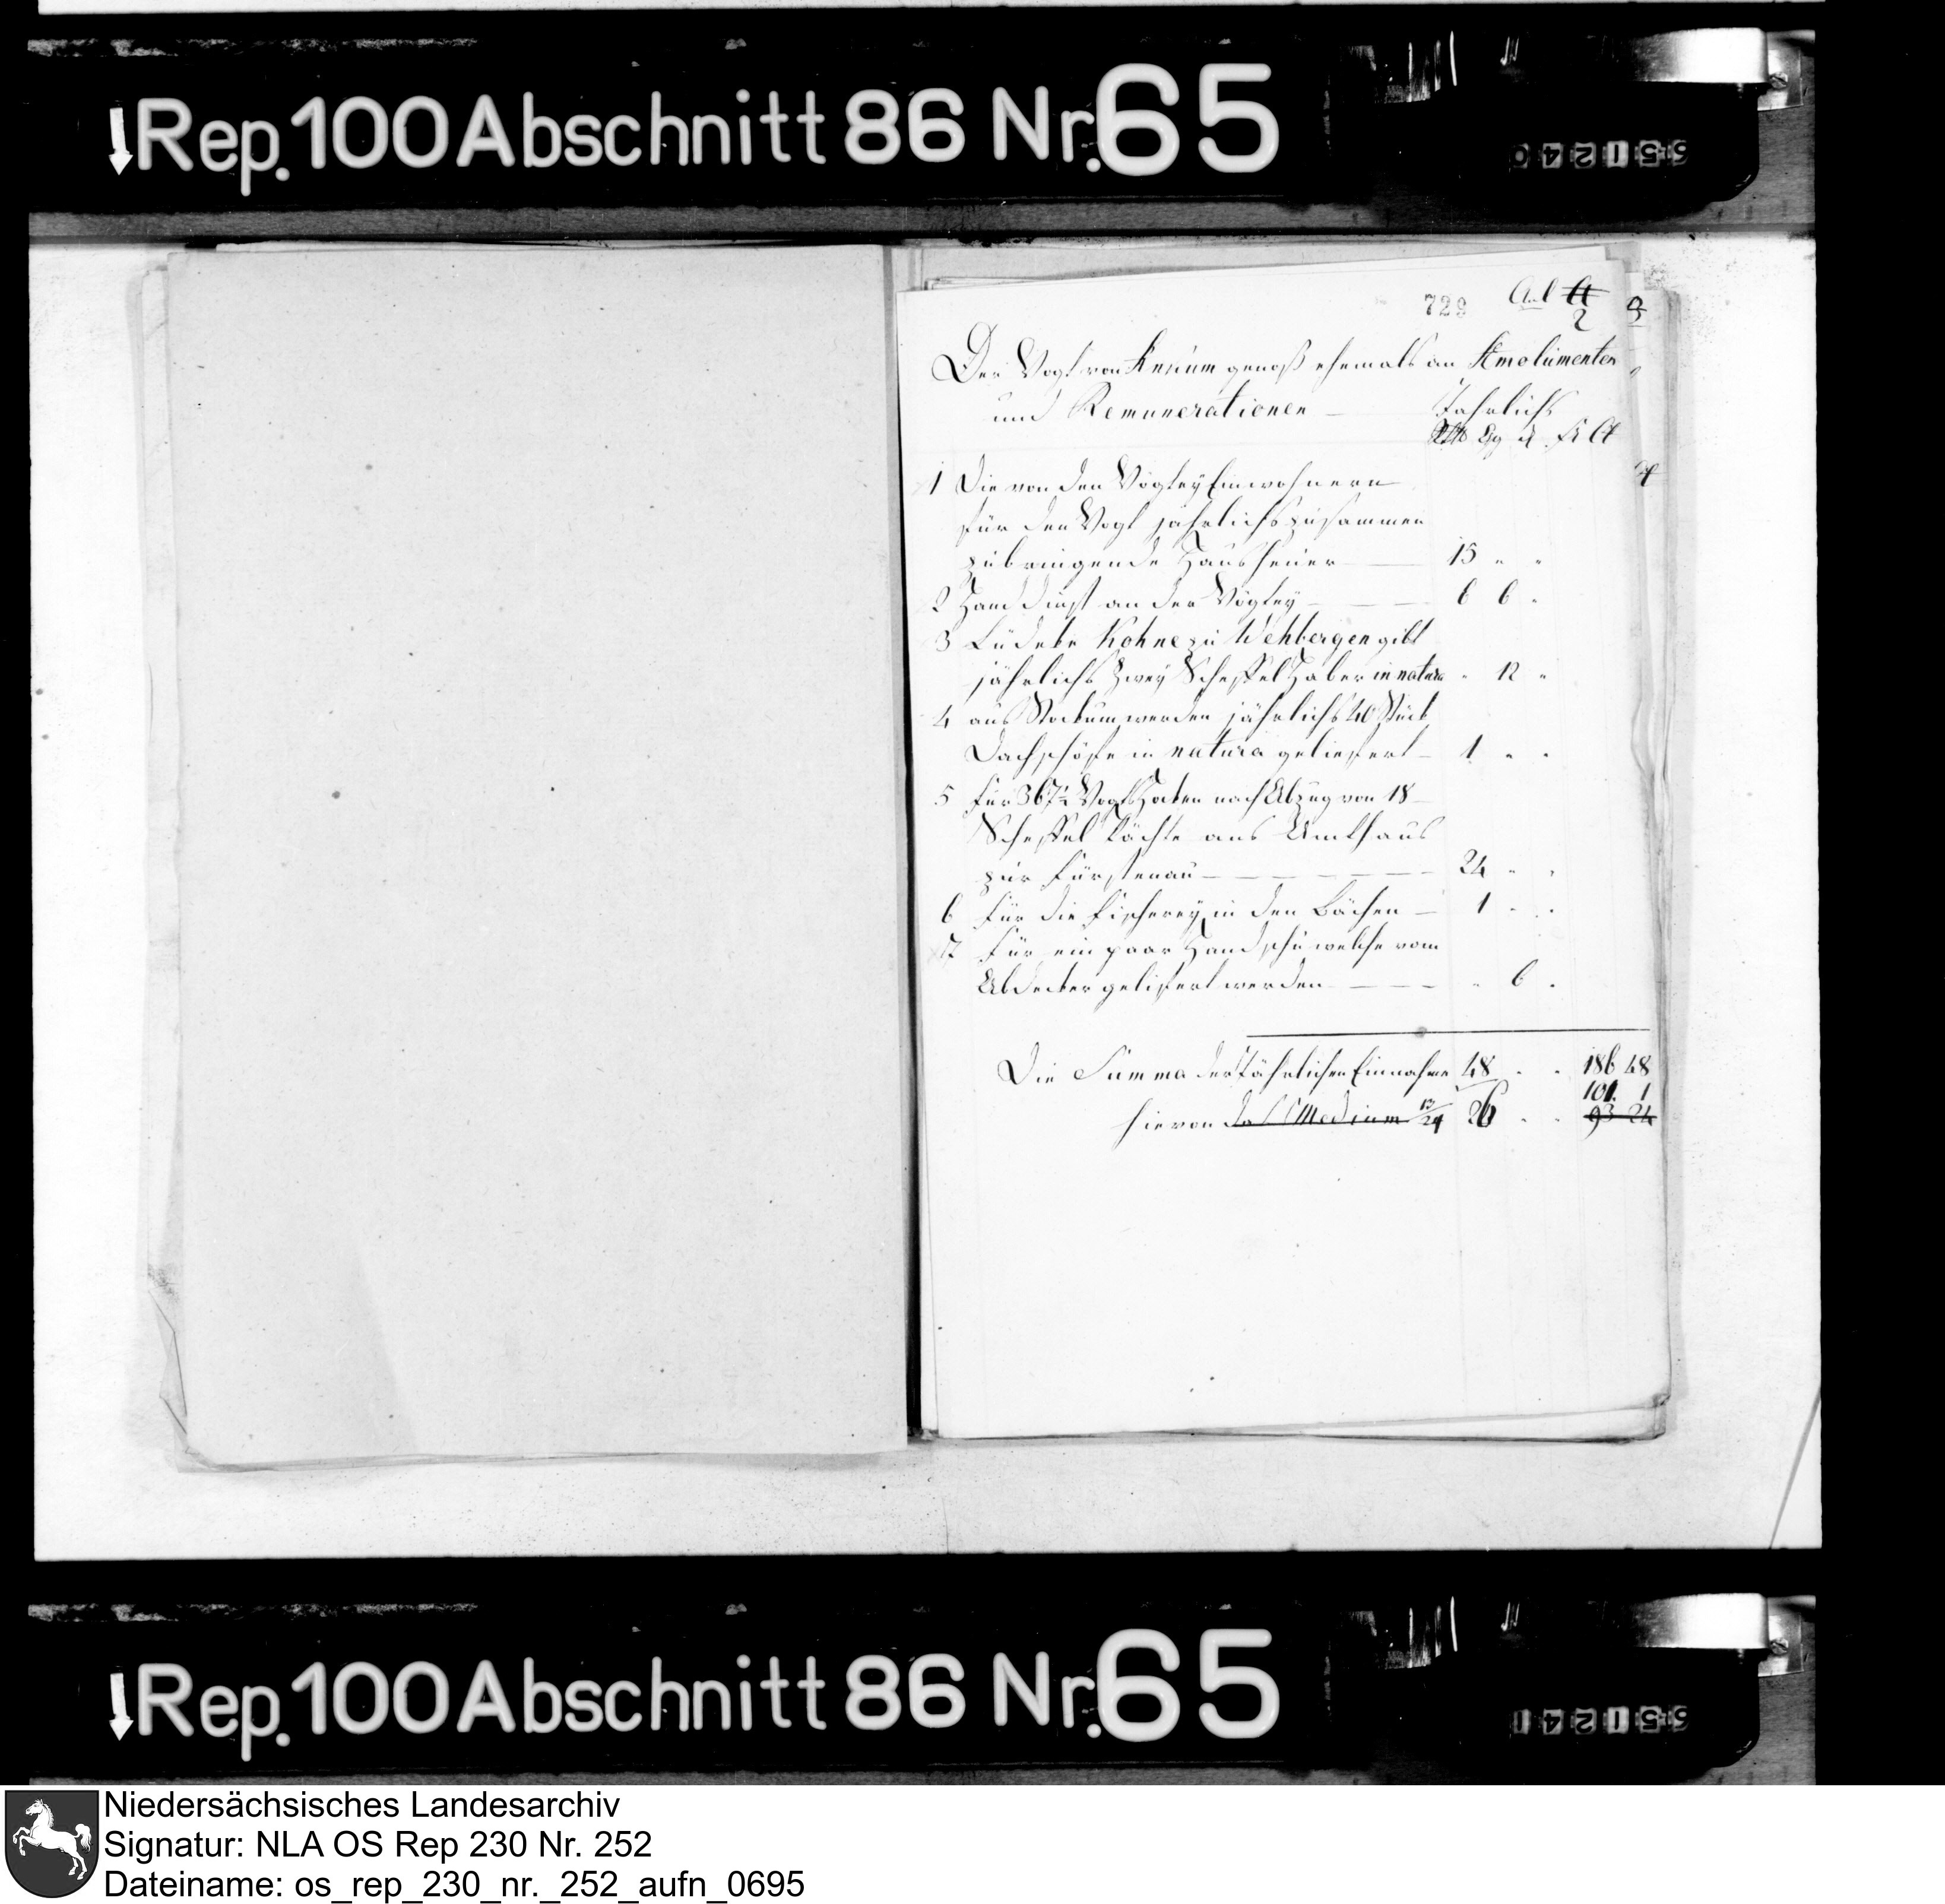 Rep. 100 Abschnitt 86 Nr. 65
729
2
Der Vogt von Ankum genoß ehemals an Emolumenten
und Remunerationen — Jährlichs
1 Die von den Vogtey Einwohnern
für den Vogt jährlichs zusammen
zubringende Hausheuer — 15 " "
2 Handdienst an der Vogtey — — — 6 6 "
3 Lüdeke Kohne zu Wehbergen gibt
jährlichs Zwey Scheffel Haber in natura " 12 "
4 aus Stockum werden jährlichs 40 Stück
Dachschöfe in natura geliefert — 1 " "
5 für 367½ Vogts Haken nach Abzug von 18
Scheffel Pächte ans Amthaus
zur Fürstenau — — — — — — 24 " "
6 für die Fischerey in den Bächen — 1 " "
7 Für ein paar Handschu welche vom
Abdecker gelifert werden — — — " 6 "
Die Summa der Jährlichen Einnahme 48 " " 186 48
101 1
hievon das Medium 13/24 26 " " 93 24
Rep. 100 Abschnitt 86 Nr. 65
Niedersächsisches Landesarchiv
Signatur: NLA OS Rep 230 Nr. 252
Dateiname: os_rep_230_nr._252_aufn_0695